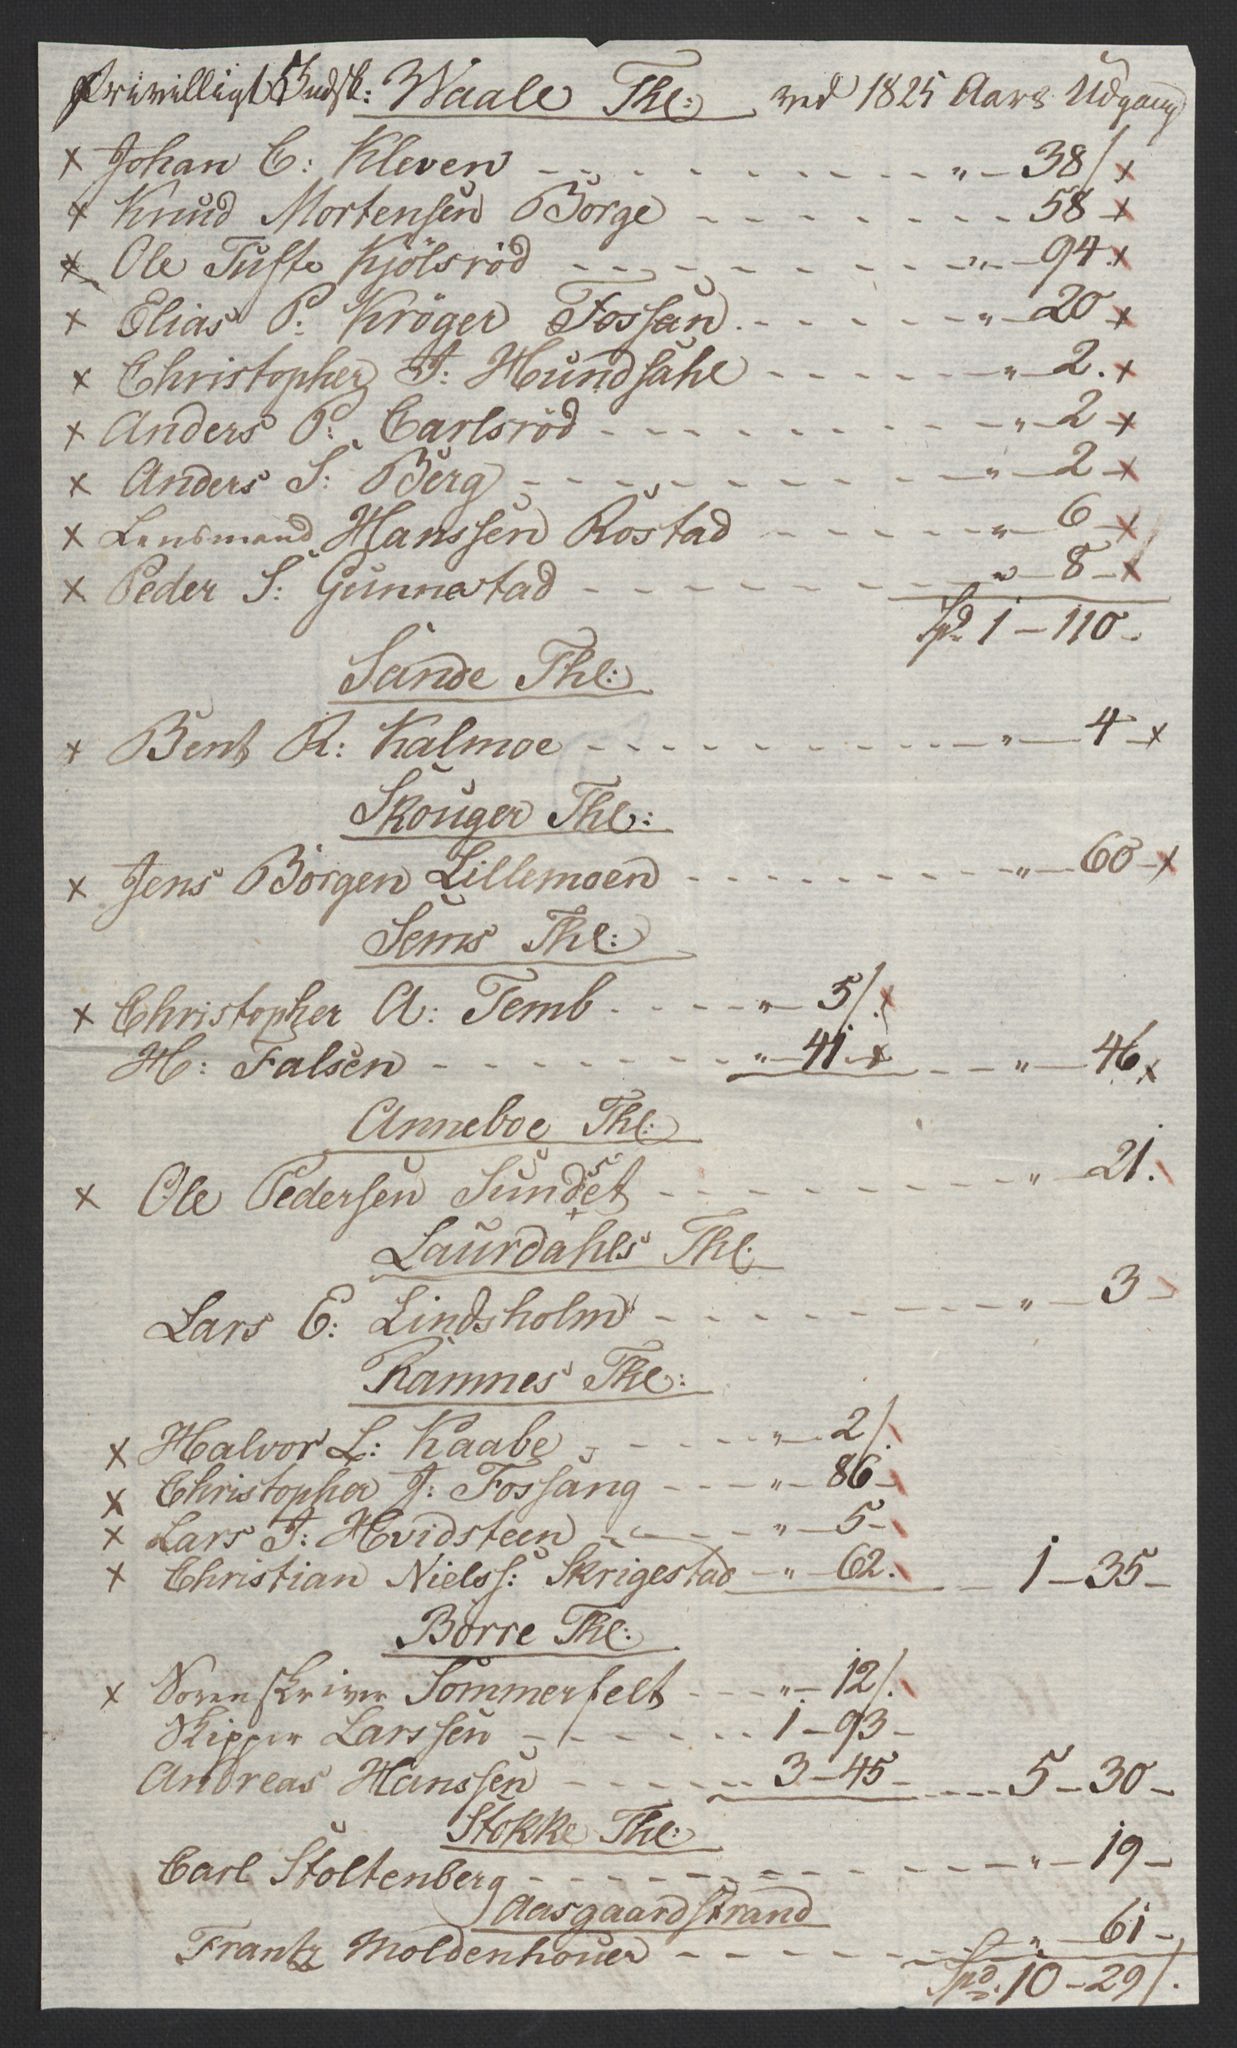 Frivilligt Indsk: Waale Thl: ved 1825 Aars Udgang
x Johan C: Kleven - - - " - 38/ x
x Knud Mortensen Borge - - - 58 - x
x Ole Tufte Kjölsröd - - - " - 94. x
x Elias P: Kröger Fossan - - - " - 20 x
x Christopher J: Hundsahl - - - " - 2. x
x Anders P: Carlsröd - - - " - 2 x
x Anders S: Berg - - - " - 2 - x
x Lensmand Hanssen Rostad - - - " - 6 - x
x Peder S: Gunnestad - - - " - 8 - x
Spd 1 - 110 -
Sande Thl:
x Bent R: Kalmoe - - - " - 4 - x
Skouger Thl:
x Jens Borgen Lillemoen - - - " - 60 - x
Sems Thl:
x Christopher A: Temb - - - " - 5/. x
H: Falsen - - - " - 41. x - - " - 46 x
Anneboe Thl:
x Ole Pedersen Sundset - - - " - 21.
Laurdahls Thl:
Lars E: Lindsholm - - - " - 3 -
Ramnes Thl:
x Halvor L: Kaabe - - - " - 2/.
x Christopher J: Fossang - - - " - 86 -
x Lars J: Hvidsteen - - - " - 5 -
x Christian Nielss: Skrigestad - " - 62. - 1 - 35 -
Borre Thl:
x Sorenskriver Sommerfelt - - " - 12/.
Skipper Larssen - - - 1 - 93 -
Andreas Hanssen - - - 3 - 45 - - - 5 - 30 -
Stokke Thl:
Carl Stoltenberg - - - " - 19 -
Aasgaardstrand
Frantz Moldenhouer - - - " - 61 -
Spd. 10 - 29/.